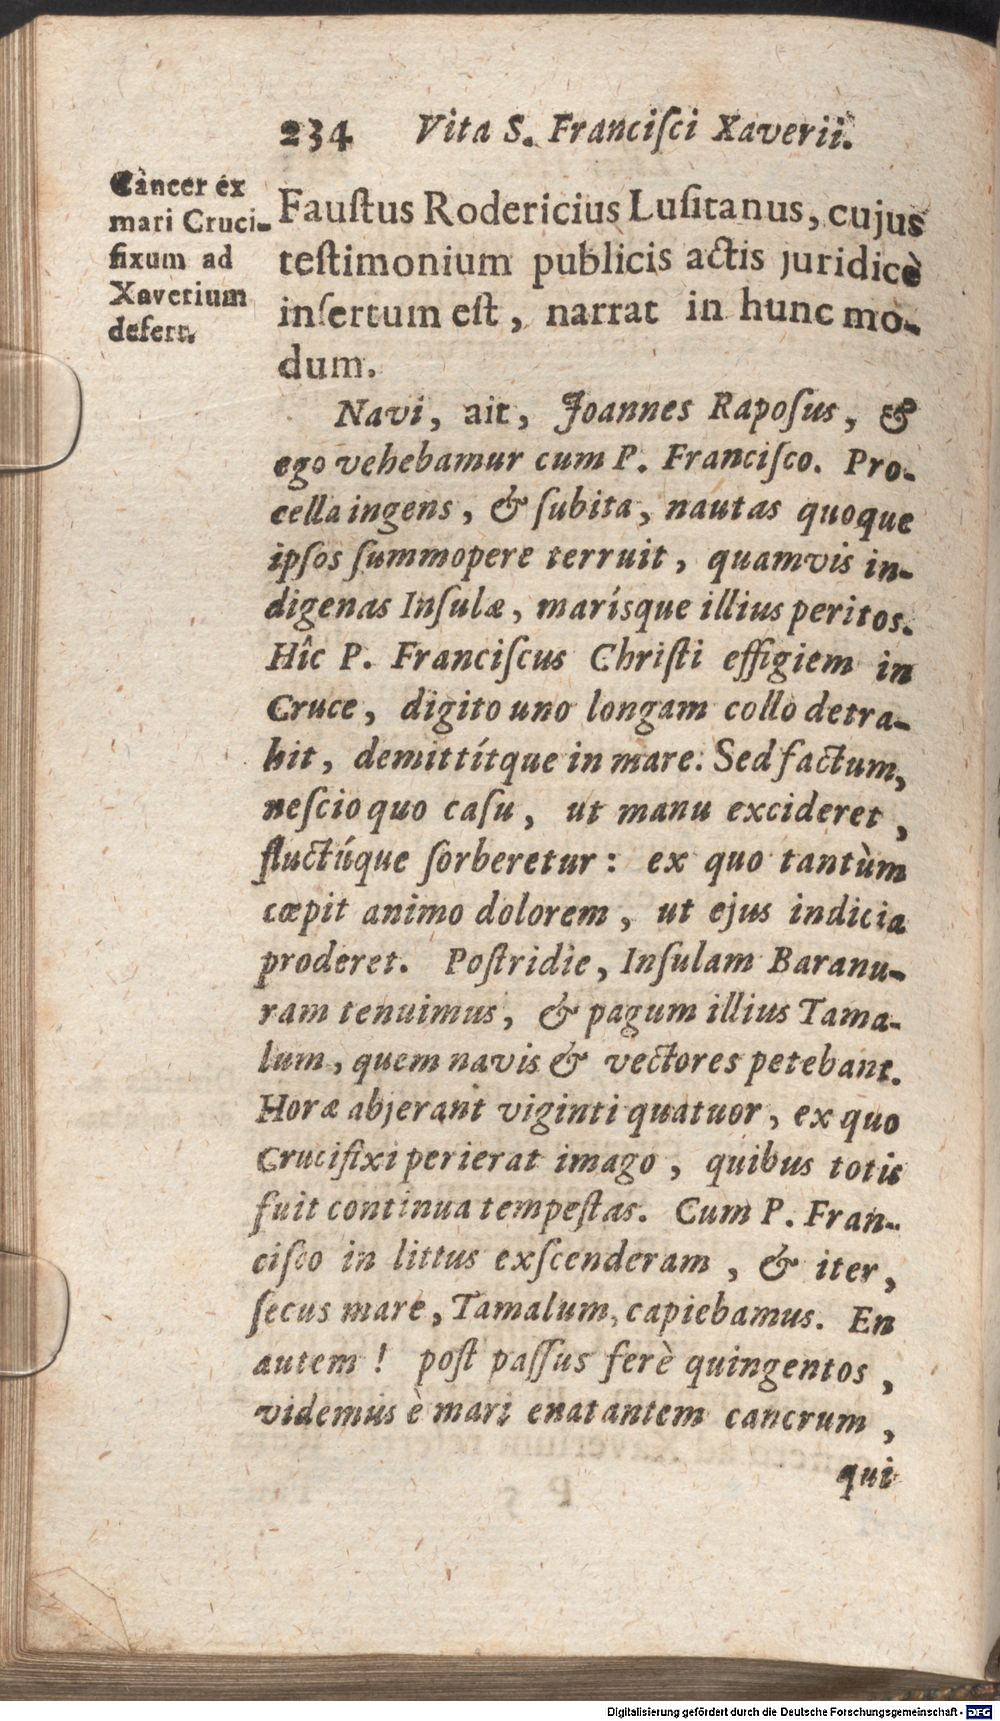 234 Vita S. Franciſci Xaverii.
Cancer ex
mari Cruci-
fixum ad
Xaverium
defert.
Fauſtus Rodericius Luſitanus, cujus
teſtimonium publicis actis juridicè
inſertum eſt, narrat in hunc mo-
dum.
Navi, ait, Joannes Rapoſus, &
ego vehebamur cum P. Franciſco. Pro-
cella ingens, & ſubita, nautas quoque
ipſos ſummopere terruit, quamvis in-
digenas Inſulæ, marísque illius peritos.
Hîc P. Franciſcus Chriſti effigiem in
Cruce, digito uno longam collo detra-
hit, demittítque in mare: Sed factum,
neſcio quo caſu, ut manu excideret,
fluctúque ſorberetur: ex quo tantùm
cœpit animo dolorem, ut ejus indicia
proderet. Poſtridie, Inſulam Baranu-
ram tenuimus, & pagum illius Tama-
lum, quem navis & vectores petebant.
Horæ abjerant viginti quatuor, ex quo
Crucifixi perierat imago, quibus totis
fuit continua tempeſtas. Cum P. Fran-
ciſco in littus exſcenderam, & iter,
ſecus mare, Tamalum, capiebamus. En
autem! poſt paſſus ferè quingentos,
videmus è mari enatantem cancrum,
qui
Digitalisierung gefördert durch die Deutsche Forschungsgemeinschaft - DFG